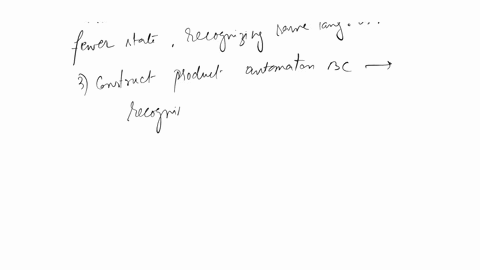 fewer state, recognizing same lang. ...
3) Construct product automaton BC →
recognis